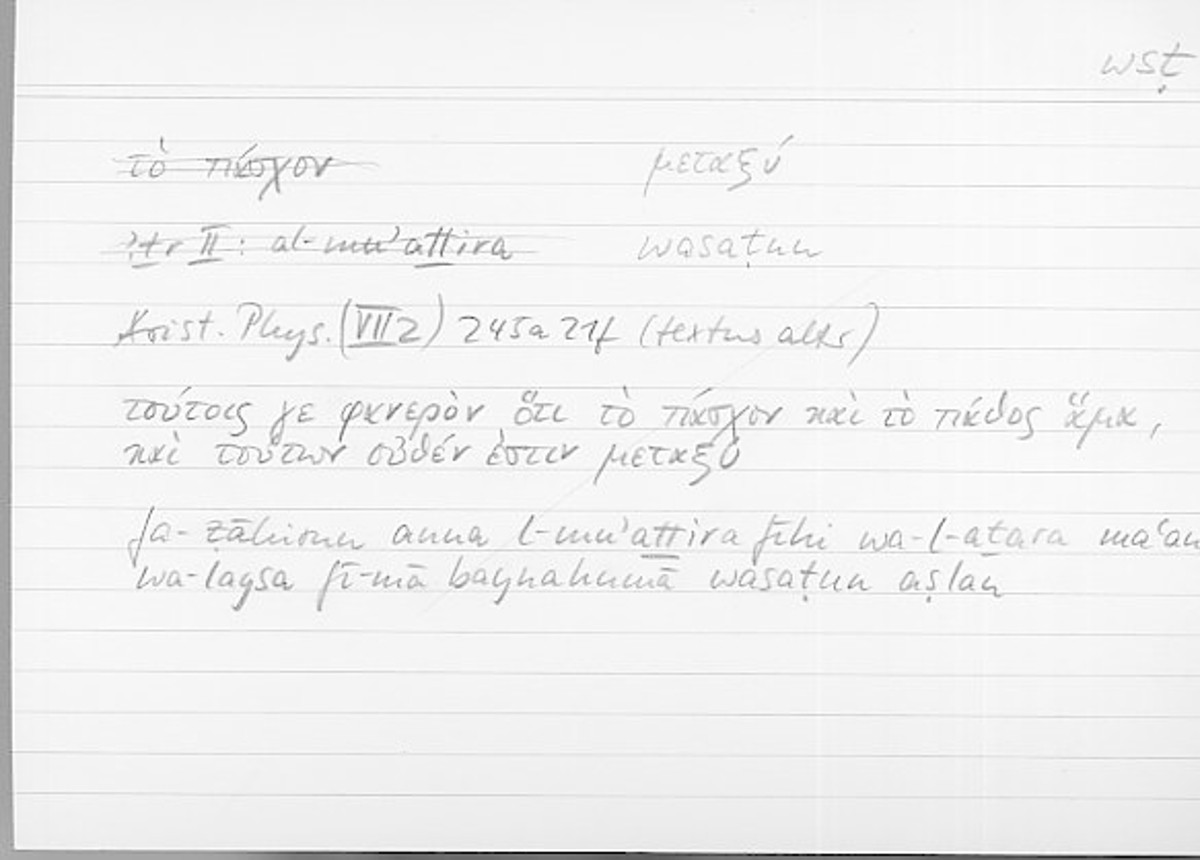 wsṭ
τὸ πάσχον μεταξύ
ʾṯr II: al-muʾaṯṯira wasaṭun
Arist. Phys. (VII 2) 245a 21f (textus alter)
τούτοις γε φανερὸν ὅτι τὸ πάσχον καὶ τὸ πάθος ἅμα,
καὶ τούτων οὐθέν ἐστιν μεταξύ
fa-ẓāhirun anna l-muʾaṯṯira fīhi wa-l-aṯara maʿan
wa-laysa fī-mā baynahumā wasaṭun aṣlan